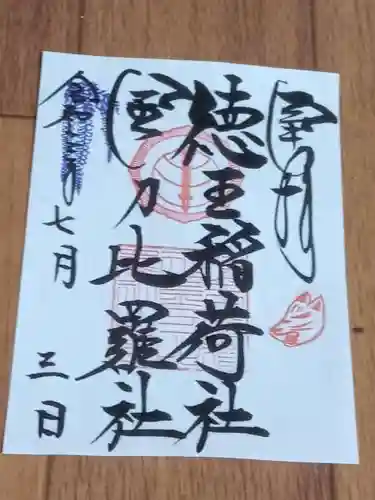 奉拝
徳王稲荷社
金刀比羅社
令和
七月
三日